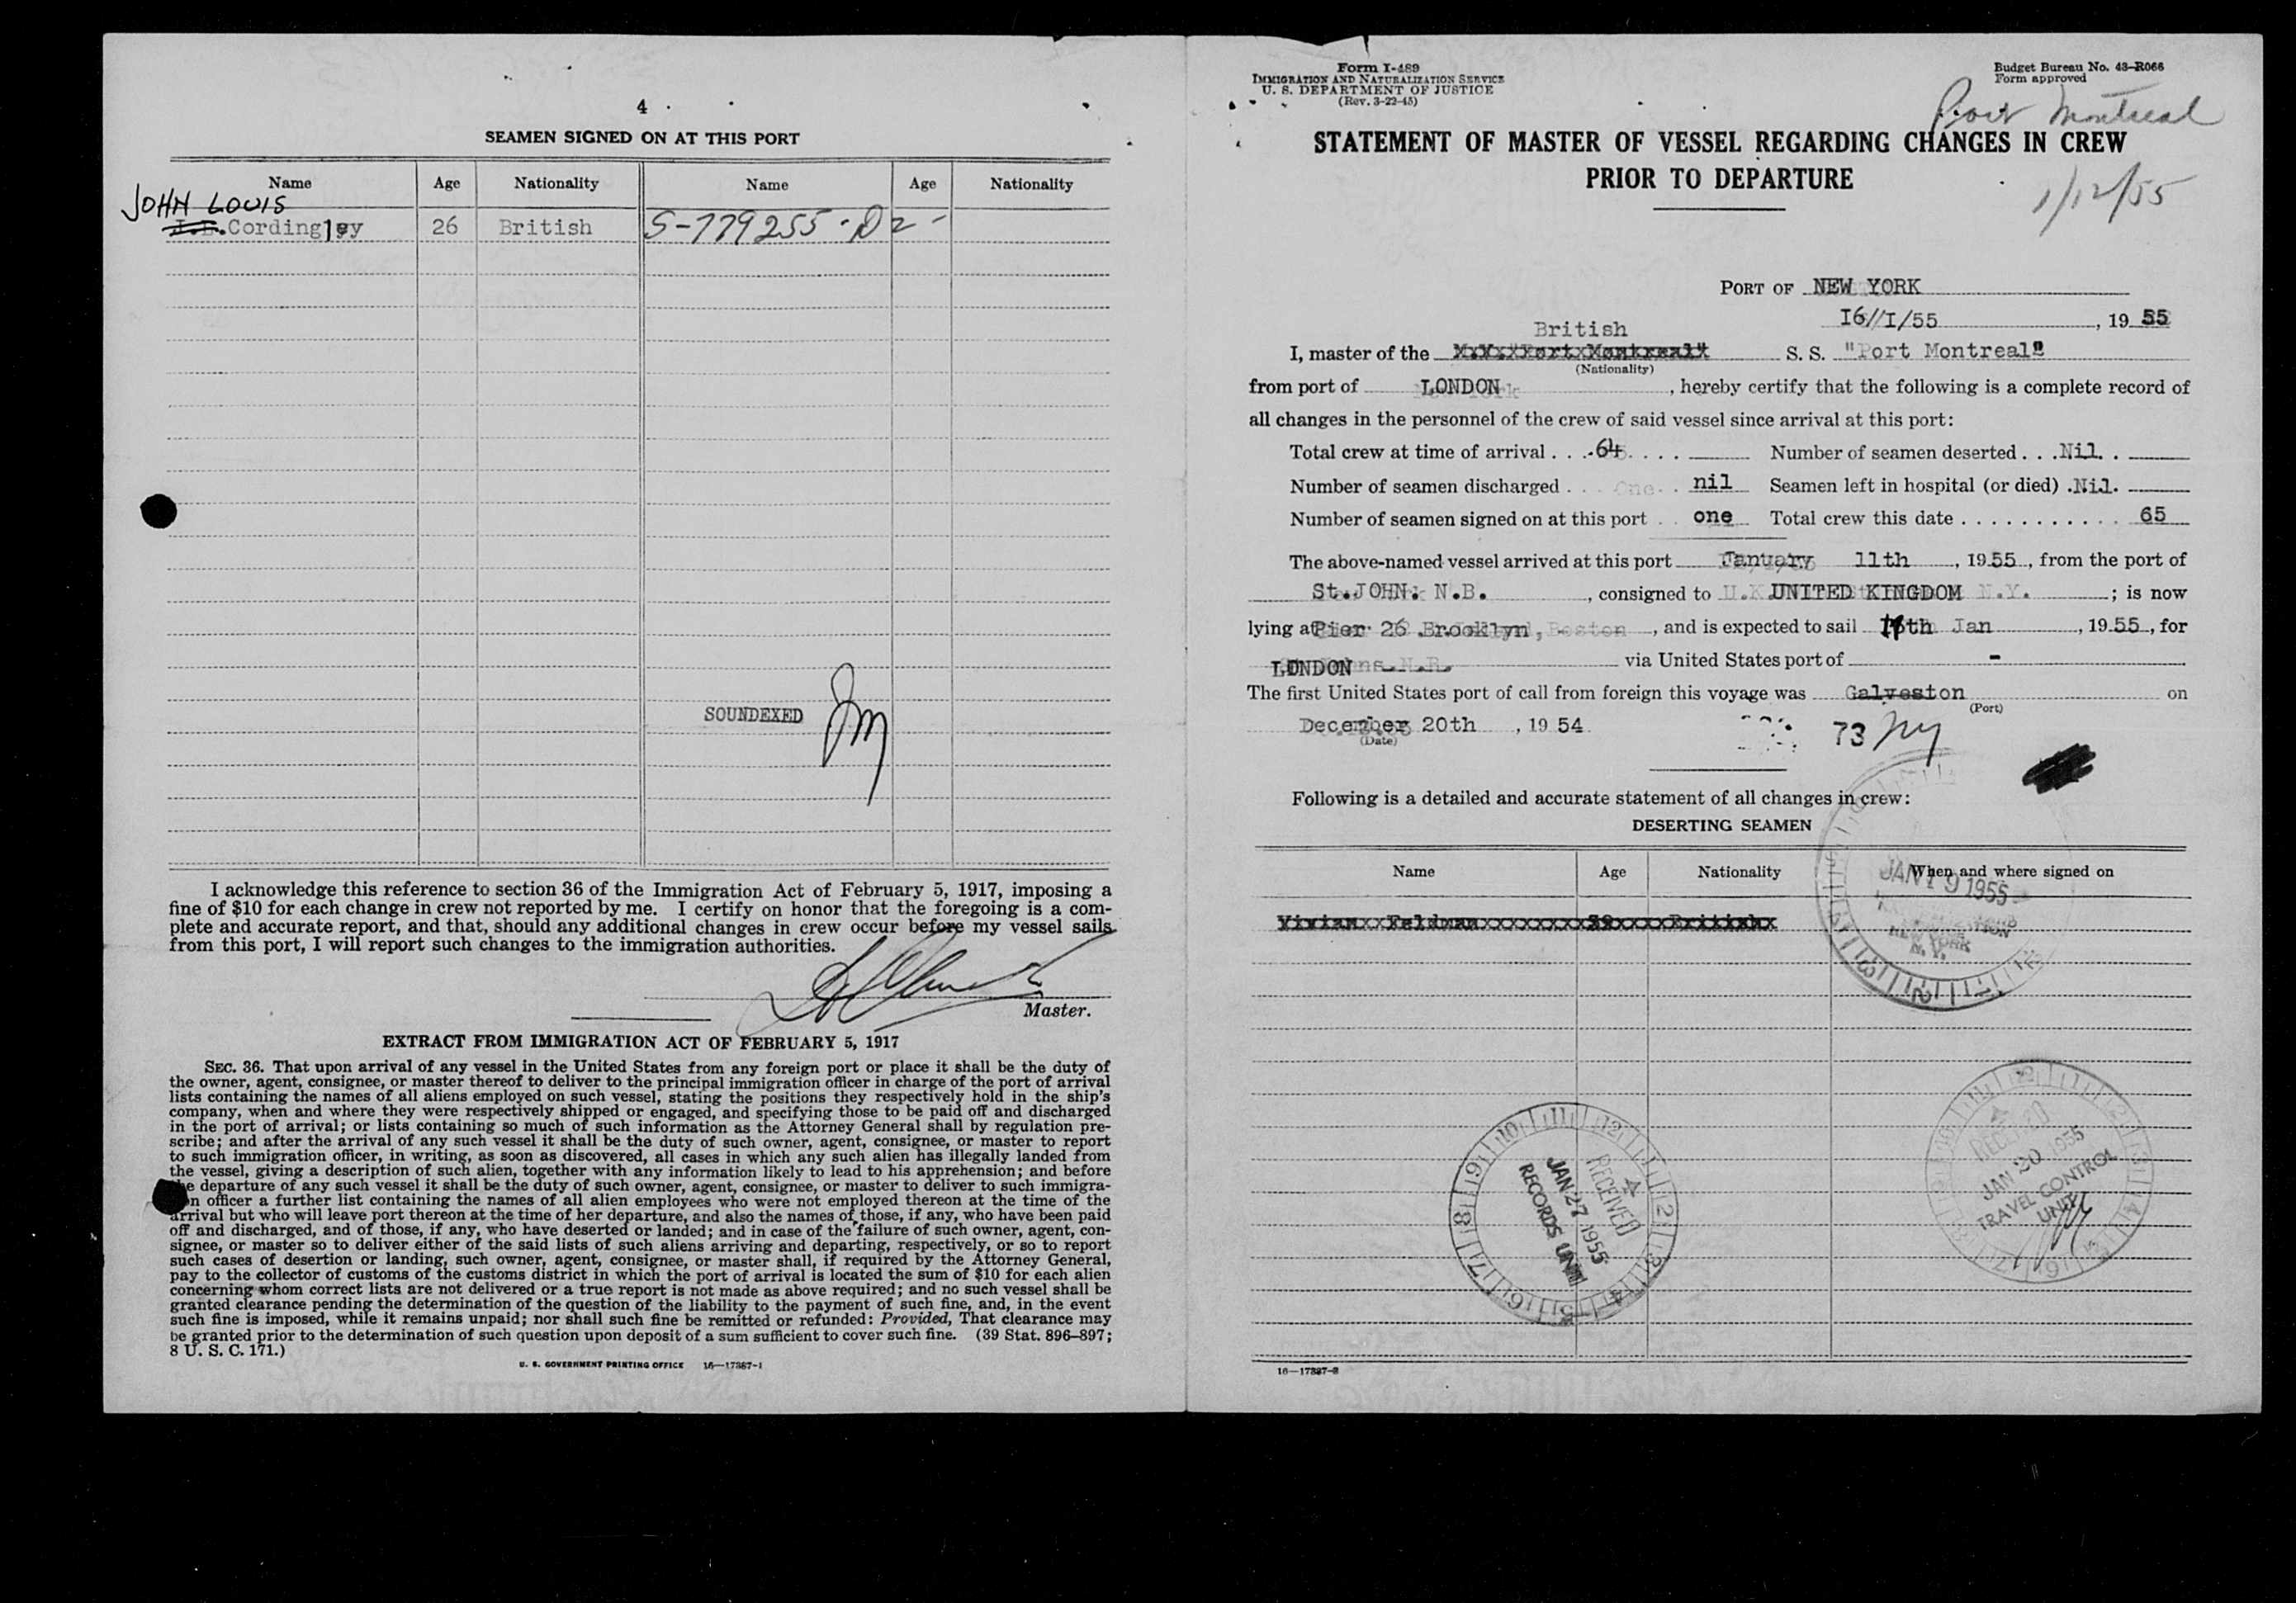 4
SEAMEN SIGNED ON AT THIS PORT
Name Age Nationality Name Age Nationality
JOHN LOUIS
Cordingley 26 British S-779255-D2-
SOUNDEXED
I acknowledge this reference to section 36 of the Immigration Act of February 5, 1917, imposing a
fine of $10 for each change in crew not reported by me. I certify on honor that the foregoing is a com-
plete and accurate report, and that, should any additional changes in crew occur before my vessel sails
from this port, I will report such changes to the immigration authorities.
Master.
EXTRACT FROM IMMIGRATION ACT OF FEBRUARY 5, 1917
SEC. 36. That upon arrival of any vessel in the United States from any foreign port or place it shall be the duty of
the owner, agent, consignee, or master thereof to deliver to the principal immigration officer in charge of the port of arrival
lists containing the names of all aliens employed on such vessel, stating the positions they respectively hold in the ship's
company, when and where they were respectively shipped or engaged, and specifying those to be paid off and discharged
in the port of arrival; or lists containing so much of such information as the Attorney General shall by regulation pre-
scribe; and after the arrival of any such vessel it shall be the duty of such owner, agent, consignee, or master to report
to such immigration officer, in writing, as soon as discovered, all cases in which any such alien has illegally landed from
the vessel, giving a description of such alien, together with any information likely to lead to his apprehension; and before
the departure of any such vessel it shall be the duty of such owner, agent, consignee, or master to deliver to such immigra-
n officer a further list containing the names of all alien employees who were not employed thereon at the time of the
arrival but who will leave port thereon at the time of her departure, and also the names of those, if any, who have been paid
off and discharged, and of those, if any, who have deserted or landed; and in case of the failure of such owner, agent, con-
signee, or master so to deliver either of the said lists of such aliens arriving and departing, respectively, or so to report
such cases of desertion or landing, such owner, agent, consignee, or master shall, if required by the Attorney General,
pay to the collector of customs of the customs district in which the port of arrival is located the sum of $10 for each alien
concerning whom correct lists are not delivered or a true report is not made as above required; and no such vessel shall be
granted clearance pending the determination of the question of the liability to the payment of such fine, and, in the event
such fine is imposed, while it remains unpaid; nor shall such fine be remitted or refunded: Provided, That clearance may
be granted prior to the determination of such question upon deposit of a sum sufficient to cover such fine. (39 Stat. 896–897;
8 U. S. C. 171.)
U. S. GOVERNMENT PRINTING OFFICE 16—17387-1
Form I-489
IMMIGRATION AND NATURALIZATION SERVICE
U. S. DEPARTMENT OF JUSTICE
(Rev. 3-22-45)
Budget Bureau No. 43-R066
Form approved
Port Montreal
STATEMENT OF MASTER OF VESSEL REGARDING CHANGES IN CREW
PRIOR TO DEPARTURE
1/12/55
PORT OF NEW YORK
I6//I/55, 19 55
British
I, master of the M.V."Port Montreal" S. S. "Port Montreal"
(Nationality)
from port of LONDON, hereby certify that the following is a complete record of
all changes in the personnel of the crew of said vessel since arrival at this port:
Total crew at time of arrival . . . 64 . . . . Number of seamen deserted . . . Nil. .
Number of seamen discharged . . . One . . nil Seamen left in hospital (or died) . Nil.
Number of seamen signed on at this port . . one Total crew this date . . . . . . . . . . . . 65
The above-named vessel arrived at this port January 11th, 1955, from the port of
St.JOHN. N.B., consigned to UNITED KINGDOM N.Y.; is now
lying at Pier 26 Brooklyn, Boston, and is expected to sail th Jan, 1955, for
LONDON via United States port of -
The first United States port of call from foreign this voyage was Galveston on
(Port)
December 20th, 1954
(Date)
73 ny
Following is a detailed and accurate statement of all changes in crew:
DESERTING SEAMEN
Name Age Nationality When and where signed on
JAN 19 1955
NEW YORK
N. Y.
Vivian Feldman 39 British
RECEIVED
JAN 27 1955
RECORDS UNIT
RECEIVED
JAN 20 1955
TRAVEL CONTROL
UNIT
16—17387-2